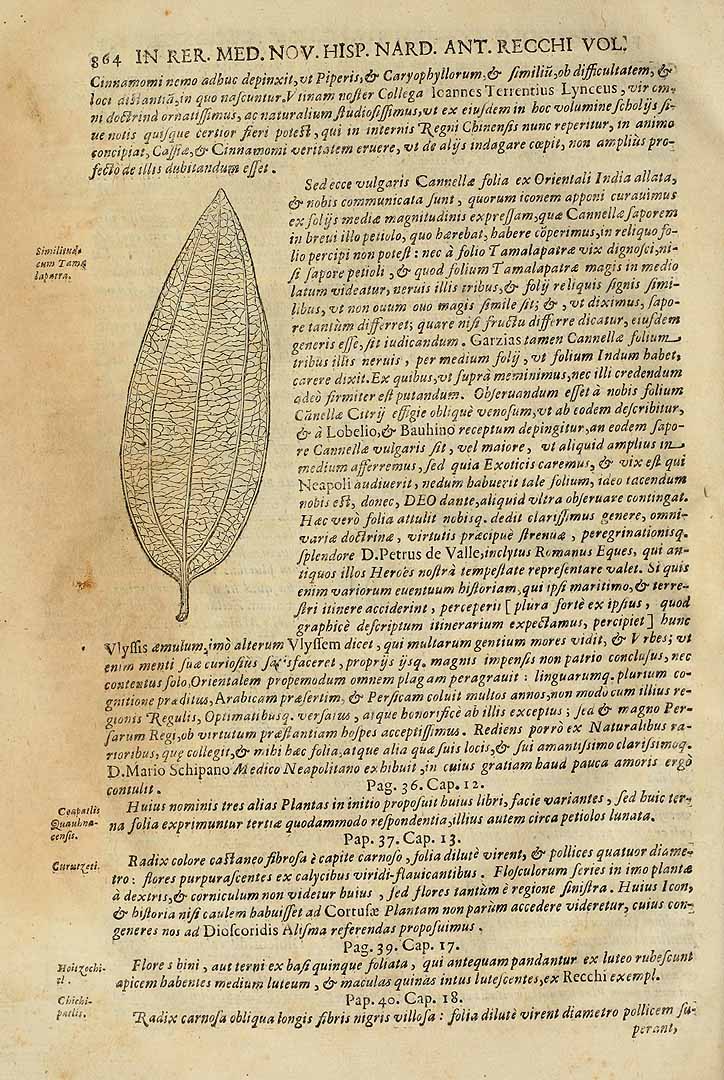 864 IN RER. MED. NOV. HISP. NARD. ANT. RECCHI VOL.
Cinnamomi nemo adhuc depinxit, vt Piperis, & Caryophyllorum, & similiũ, ob difficultatem, &
loci distantiã, in quo nascuntur. Vtinam noster Collega Ioannes Terrentius Lynceus, vir om-
ni doctrina ornatissimus, ac naturalium studiosissimus, vt ex eiusdem in hoc volumine scholijs si-
ue notis quisque certior fieri potest, qui in internis Regni Chinensis nunc reperitur, in animo
concipiat, Cassiæ, & Cinnamomi veritatem eruere, vt de alijs indagare cœpit, non ampliùs pro-
fectò de illis dubitandum esset.
Sed ecce vulgaris Cannellæ folia ex Orientali India allata,
& nobis communicata sunt, quorum iconem apponi curauimus
ex folijs mediæ magnitudinis expressam, quæ Cannellæ saporem
in breui illo petiolo, quo hærebat, habere cõperimus, in reliquo fo-
lio percipi non potest: nec à folio Tamalapatræ vix dignosci, ni-
si sapore petioli, & quod folium Tamalapatræ magis in medio
latum videatur, neruis illis tribus, & folij reliquis signis simi-
libus, vt non ouum ouo magis simile sit; &, vt diximus, sapo-
re tantùm differret; quare nisi fructu differre dicatur, eiusdem
generis esse, sit iudicandum. Garzias tamen Cannellæ folium
tribus illis neruis, per medium folij, vt folium Indum habet,
carere dixit. Ex quibus, vt suprà meminimus, nec illi credendum
adeò firmiter est putandum. Obseruandum esset à nobis folium
Cãnellæ Citrij effigie obliquè venosum, vt ab eodem describitur,
& à Lobelio, & Bauhino receptum depingitur, an eodem sapo-
re Cannellæ vulgaris sit, vel maiore, vt aliquid amplius in
medium afferremus, sed quia Exoticis caremus, & vix est qui
Neapoli audiuerit, nedum habuerit tale folium, ideo tacendum
nobis est, donec, DEO dante, aliquid vltra obseruare contingat.
Hæc verò folia attulit nobisq. dedit clarissimus genere, omni-
variæ doctrinæ, virtutis præcipuè strenuæ, peregrinationisq.
splendore D. Petrus de Valle, inclytus Romanus Eques, qui an-
tiquos illos Heroës nostrà tempestate representare valet. Si quis
enim variorum euentuum historiam, qui ipsi maritimo, & terre-
stri itinere acciderint, perceperit [ plura fortè ex ipsius, quod
graphicè descriptum itinerarium expectamus, percipiet ] hunc
Vlyssis æmulum, imò alterum Vlyssem dicet, qui multarum gentium mores vidit, & Vrbes; vt
enim menti suæ curiosiùs satisfaceret, proprijs ijsq. magnis impensis non patrio conclusus, nec
contentus solo, Orientalem propemodum omnem plagam peragrauit: linguarumq. plurium co-
gnitione præditus, Arabicam præsertim, & Persicam coluit multos annos, non modo cum illius re-
gionis Regulis, Optimatibusq. versatus, atque honorificè ab illis exceptus; sed & magno Per-
sarum Regi, ob virtutum præstantiam hospes acceptissimus. Rediens porrò ex Naturalibus ra-
rioribus, quę collegit, & mihi hæc folia, atque alia quæ suis locis, & sui amantissimo clarissimoq.
D. Mario Schipano Medico Neapolitano exhibuit, in cuius gratiam haud pauca amoris ergò
contulit.
Pag. 36. Cap. 12.
Huius nominis tres alias Plantas in initio proposuit huius libri, facie variantes, sed huic ter-
na folia exprimuntur tertiæ quodammodo respondentia, illius autem circa petiolos lunata.
Pap. 37. Cap. 13.
Radix colore castaneo fibrosa è capite carnoso, folia dilutè virent, & pollices quatuor diame-
tro: flores purpurascentes ex calycibus viridi-flauicantibus. Flosculorum series in imo plantæ
à dextris, & corniculum non videtur huius, sed flores tantùm è regione sinistra. Huius Icon,
& historia nisi caulem habuisset ad Cortusæ Plantam non parùm accedere videretur, cuius con-
generes nos ad Dioscoridis Alisma referendas proposuimus.
Pag. 39. Cap. 17.
Flores bini, aut terni ex basi quinque foliata, qui antequam pandantur ex luteo rubescunt
apicem habentes medium luteum, & maculas quinas intus lutescentes, ex Recchi exempl.
Pap. 40. Cap. 18.
Radix carnosa obliqua longis fibris nigris villosa: folia dilutè virent diametro pollicem su-
perant,
Similitudo
cum Tama
lapatra.
Coapatlis
Quauhna-
censis.
Curutzeti.
Chichi-
patlis.